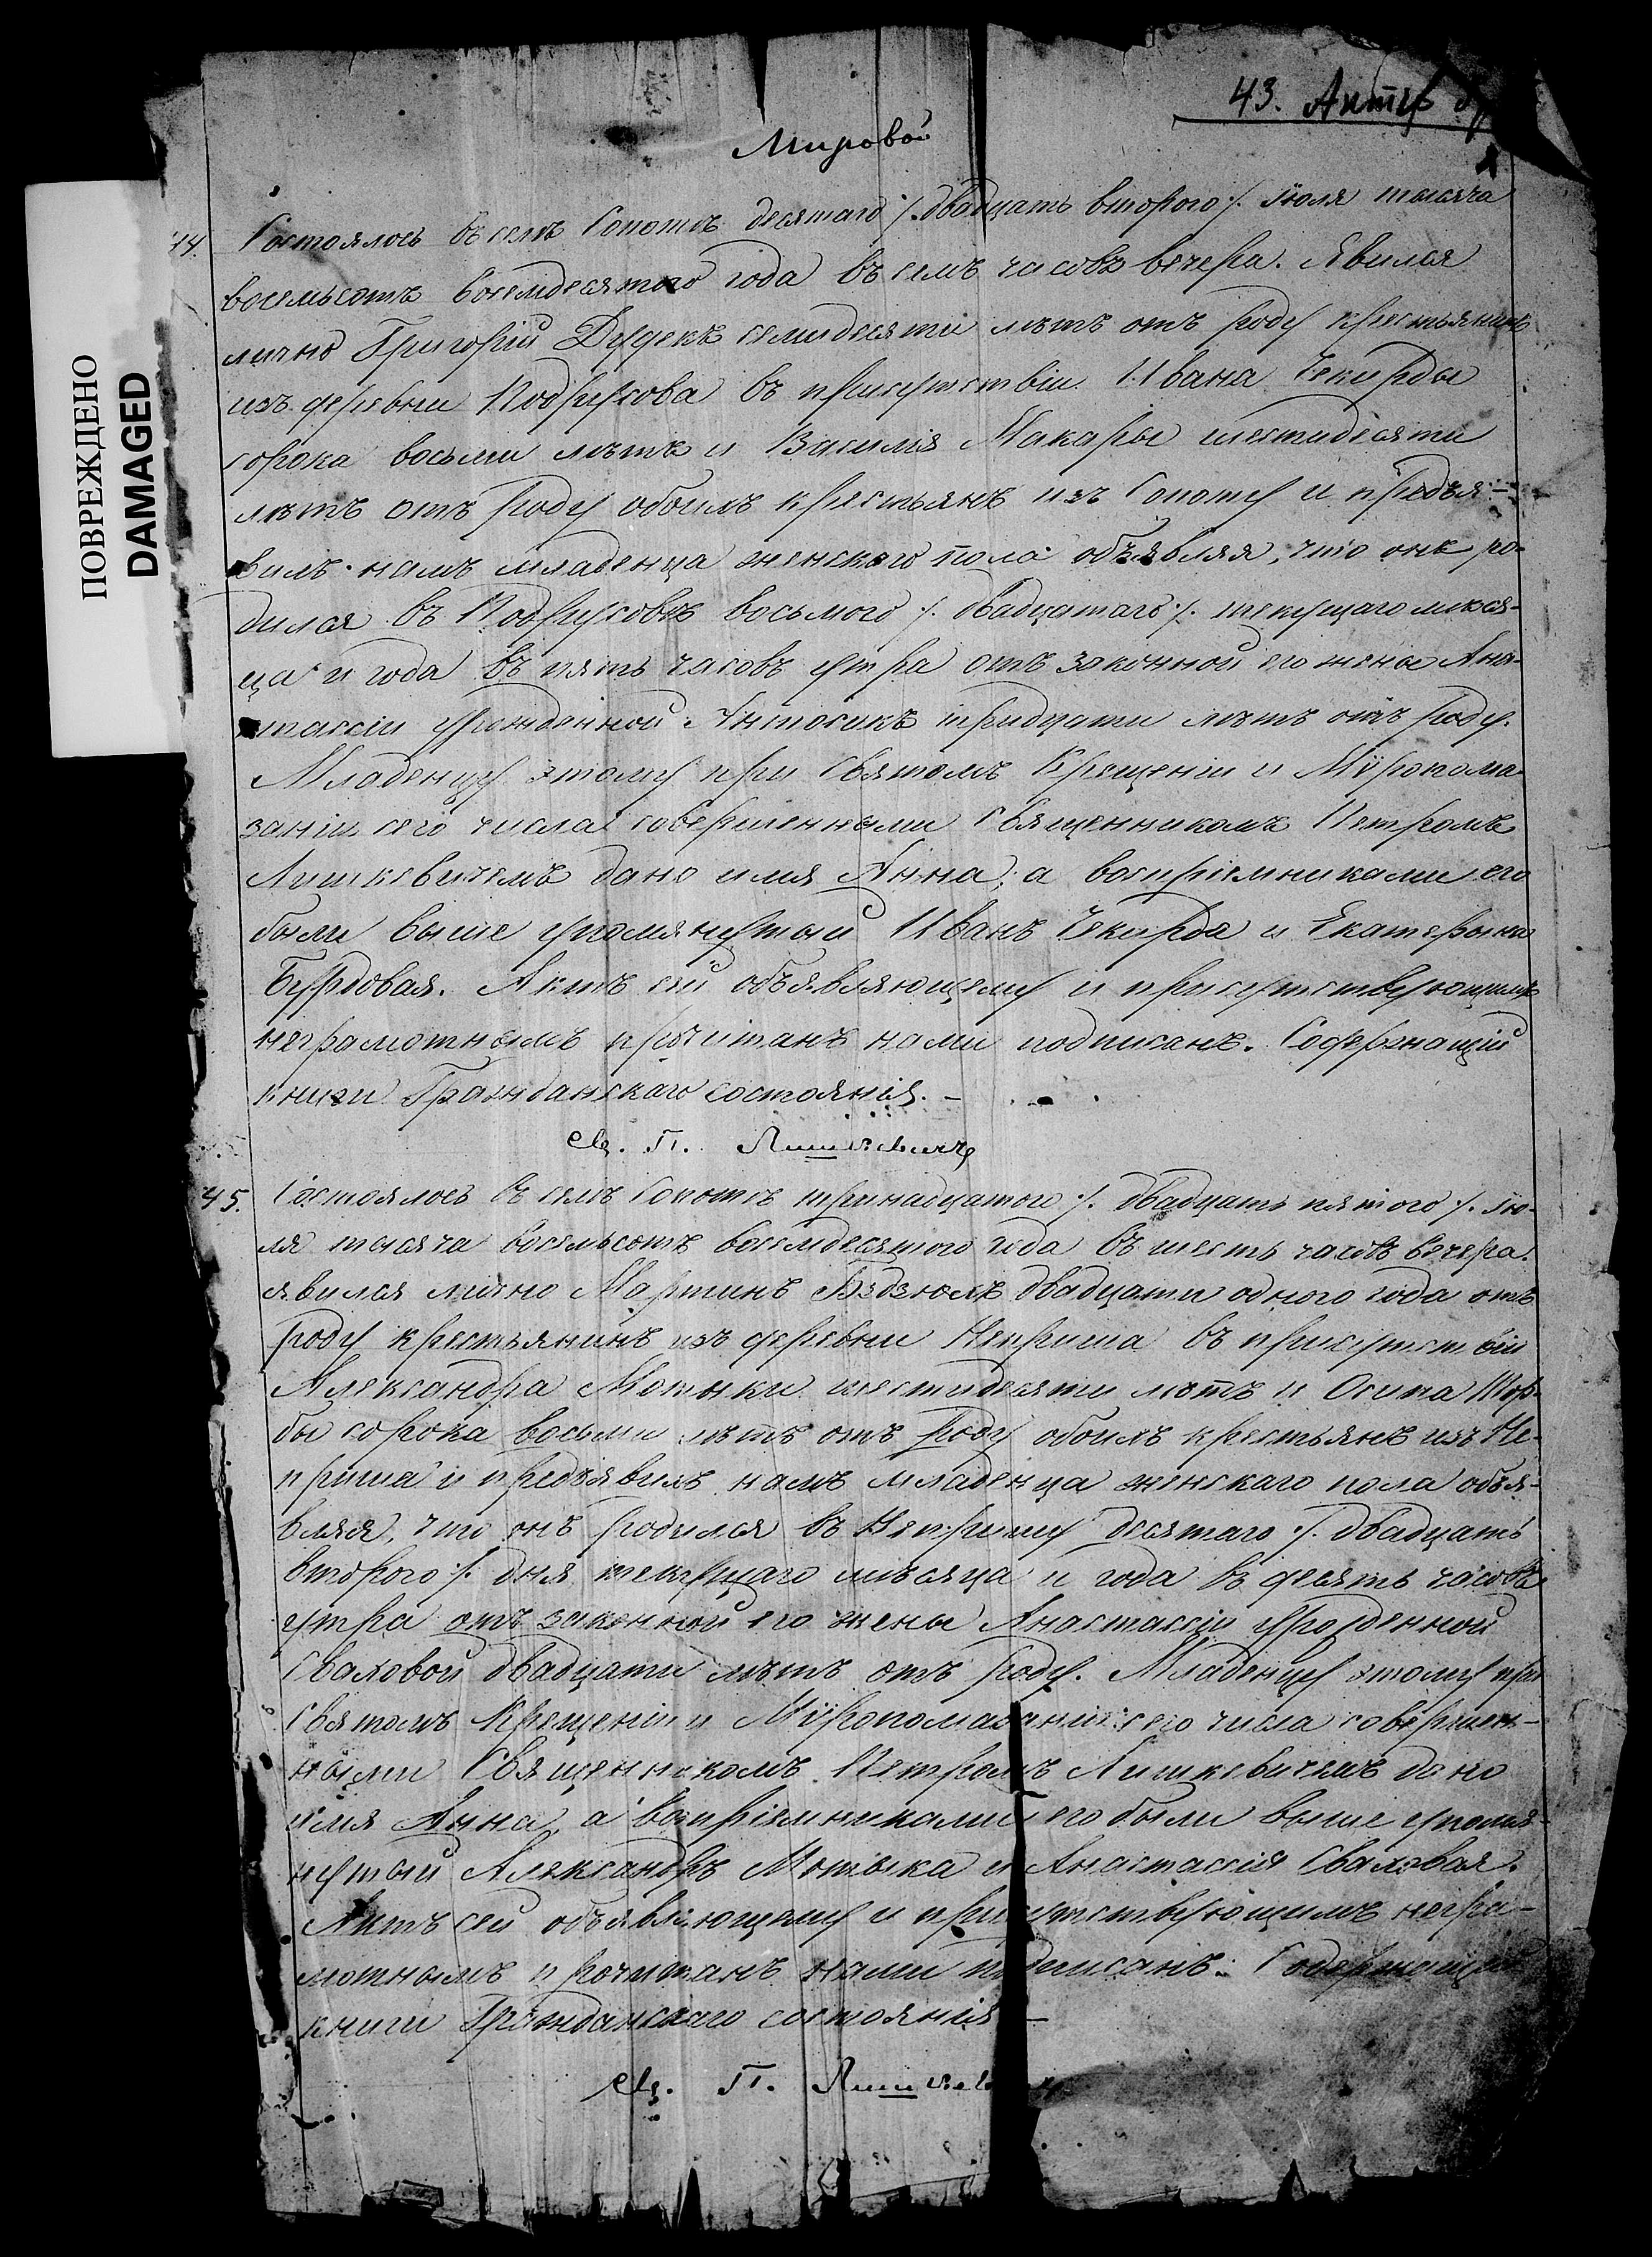 43. Актъ
Мировой
ПОВРЕЖДЕНО
DAMAGED
44. Состоялось въ селѣ Сопотѣ десятаго /. двадцать второго ./. Іюля тысяча
восемьсотъ восемдесятого года въ семъ часовъ вечера. Явился
лично Григорій Дудекъ семидесяти лѣтъ отъ роду крестьянинъ
изъ деревни Подрусова въ присутствіи Ивана Чекирды
сорока восьми лѣтъ и Василія Макары шестидесяти
лѣтъ отъ роду обоихъ крестьянъ изъ Сопоту и предъя-
вилъ намъ младенца женского пола объявляя, что онъ ро-
дился въ Подрусовѣ восьмого ./. двадцатаго ./. текущаго мѣся-
ца и года въ пять часовъ утра отъ законной его жены Ана-
стассіи урожденной Антосикъ тридцати лѣтъ отъ роду.
Младенцу этому при Святомъ Крещеніи и Мѵропома-
заніи сего числа совершенными Священникомъ Петромъ
Лишкевичемъ дано имя Анна, а воспріемниками его
были выше упомянутый Иванъ Чекирда и Екатерына
Бурдовая. Актъ сей объявляющему и присутствующимъ
неграмотнымъ прочитанъ нами подписанъ. Содержащій
книги Гражданскаго состоянія. -
Св. П. Лишкевичъ
45. Состоялось въ селѣ Сопотѣ тринадцатого ./. двадцать пятого ./. Ію-
ля тысяча восемьсотъ восемдесятого года въ шесть часовъ вечера.
явился лично Мартинъ Бздзюлъ двадцати одного года отъ
роду крестьянинъ изъ деревни Неприша въ присутствіи
Александра Мотыки шестидесяти лѣтъ и Осипа
бы сорока восьми лѣтъ отъ роду обоихъ крестьянъ изъ Не-
приша и предъявилъ намъ младенца женскаго пола объя-
вляя, что онъ родился въ Непришу десятаго ./. двадцать
второго ./. дня текущаго мѣсяца и года въ девять часовъ
утра отъ законной его жены Анастассіи урожденной
Сваховой двадцати лѣтъ отъ роду. Младенцу этому при
Святомъ Крещеніи и Мѵропомазаніи сего числа совершен-
ными Священникомъ Петромъ Лишкевичемъ дано
имя Анна, а воспріемниками его были выше упомя-
нутый Александръ Мотыка и Анастассія Сваховая.
Актъ сей объявляющему и присутствующимъ негра-
мотнымъ прочитанъ нами подписанъ. Содержащій
книги Гражданскаго состоянія -
Св. П. Лишкев